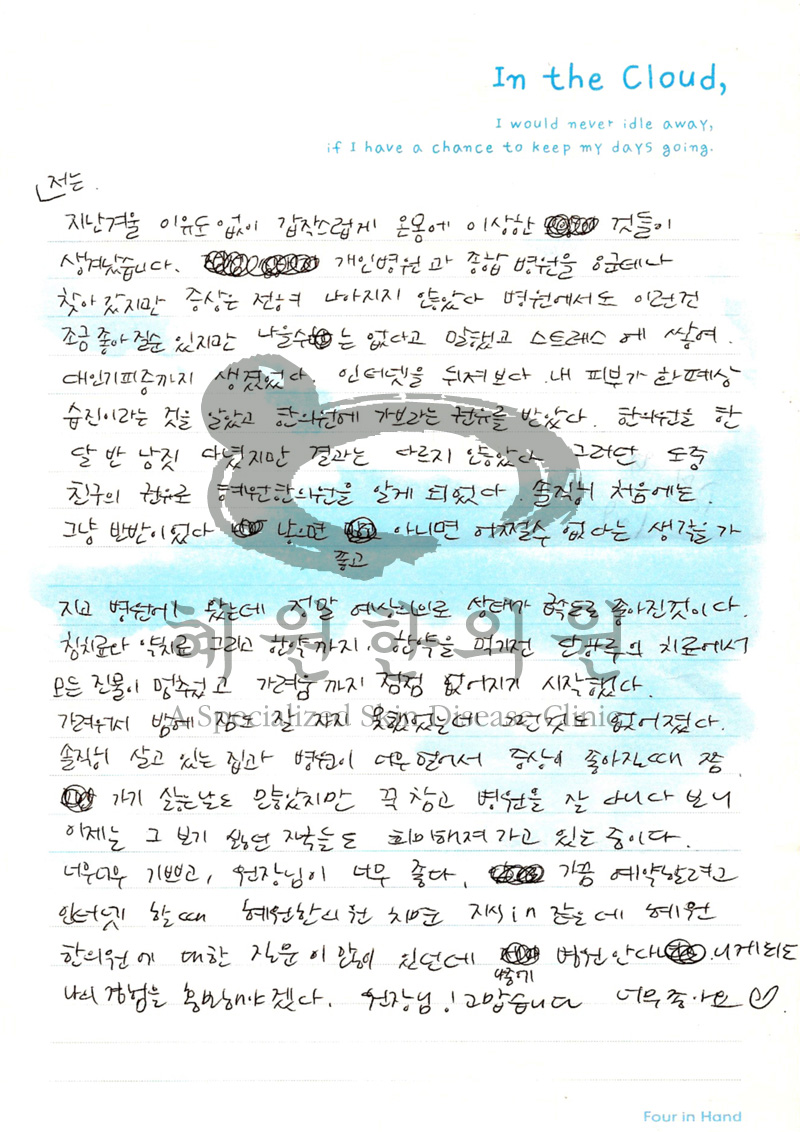 In the Cloud,
I would never idle away,
if I have a chance to keep my days going.
저는
지난겨울 이유도 없이 갑작스럽게 온몸에 이상한 것들이
생겨났습니다. 개인병원과 종합 병원을 응근데나
찾아 갔지만 증상은 전혀 나아지지 않았다 병원에서도 이런건
조금 좋아 질순 있지만 나을수 는 없다고 말했고 스트레스에 쌓여.
대인기피증까지 생겼었다. 인터넷을 뒤져보다 내 피부가 한폐상
습진이라는 것을 알았고 한의원에 가보라는 권유를 받았다. 한의원을 한
달 반 남짓 다녔지만 결과는 다르지 않았다 그러던 도중
친구의 권유로 혜원한의원을 알게 되었다. 솔직히 처음에는.
그냥 반반이었다 낳으면 아니면 어쩔수 없다는 생각을 가
좋고
지고 병원에 왔는데 정말 예상외로 상태가 좋아진것이다.
침치료와 약치료 그리고 한약까지. 한약을 먹기전 단하루의 치료에서
모든 진물이 멈추었고 가려움까지 점점 없어지기 시작했다.
가려워서 밤에 잠도 잘 자지 못했었는데 그런것도 없어졌다.
솔직히 살고 있는 집과 병원이 너무 멀어서 증상이 좋아질때 쯤
가기 싫은날도 많았지만 꾹 참고 병원을 잘 다니다 보니
이제는 그 보기 싫던 자국들도 희미해져 가고 있는 중이다.
너무너무 기쁘고, 원장님이 너무 좋다. 가끔 예약할려고
인터넷 할때 혜원한의원 치면 지식in 같은데 혜원
한의원에 대한 질문이 많이 있던데 병원 안다 니게되도
나중에
나의 경험을 홍보해야겠다. 원장님! 고맙습니다 너무좋아요
혜원한의원
A Specialized Skin Disease Clinic
Four in Hand